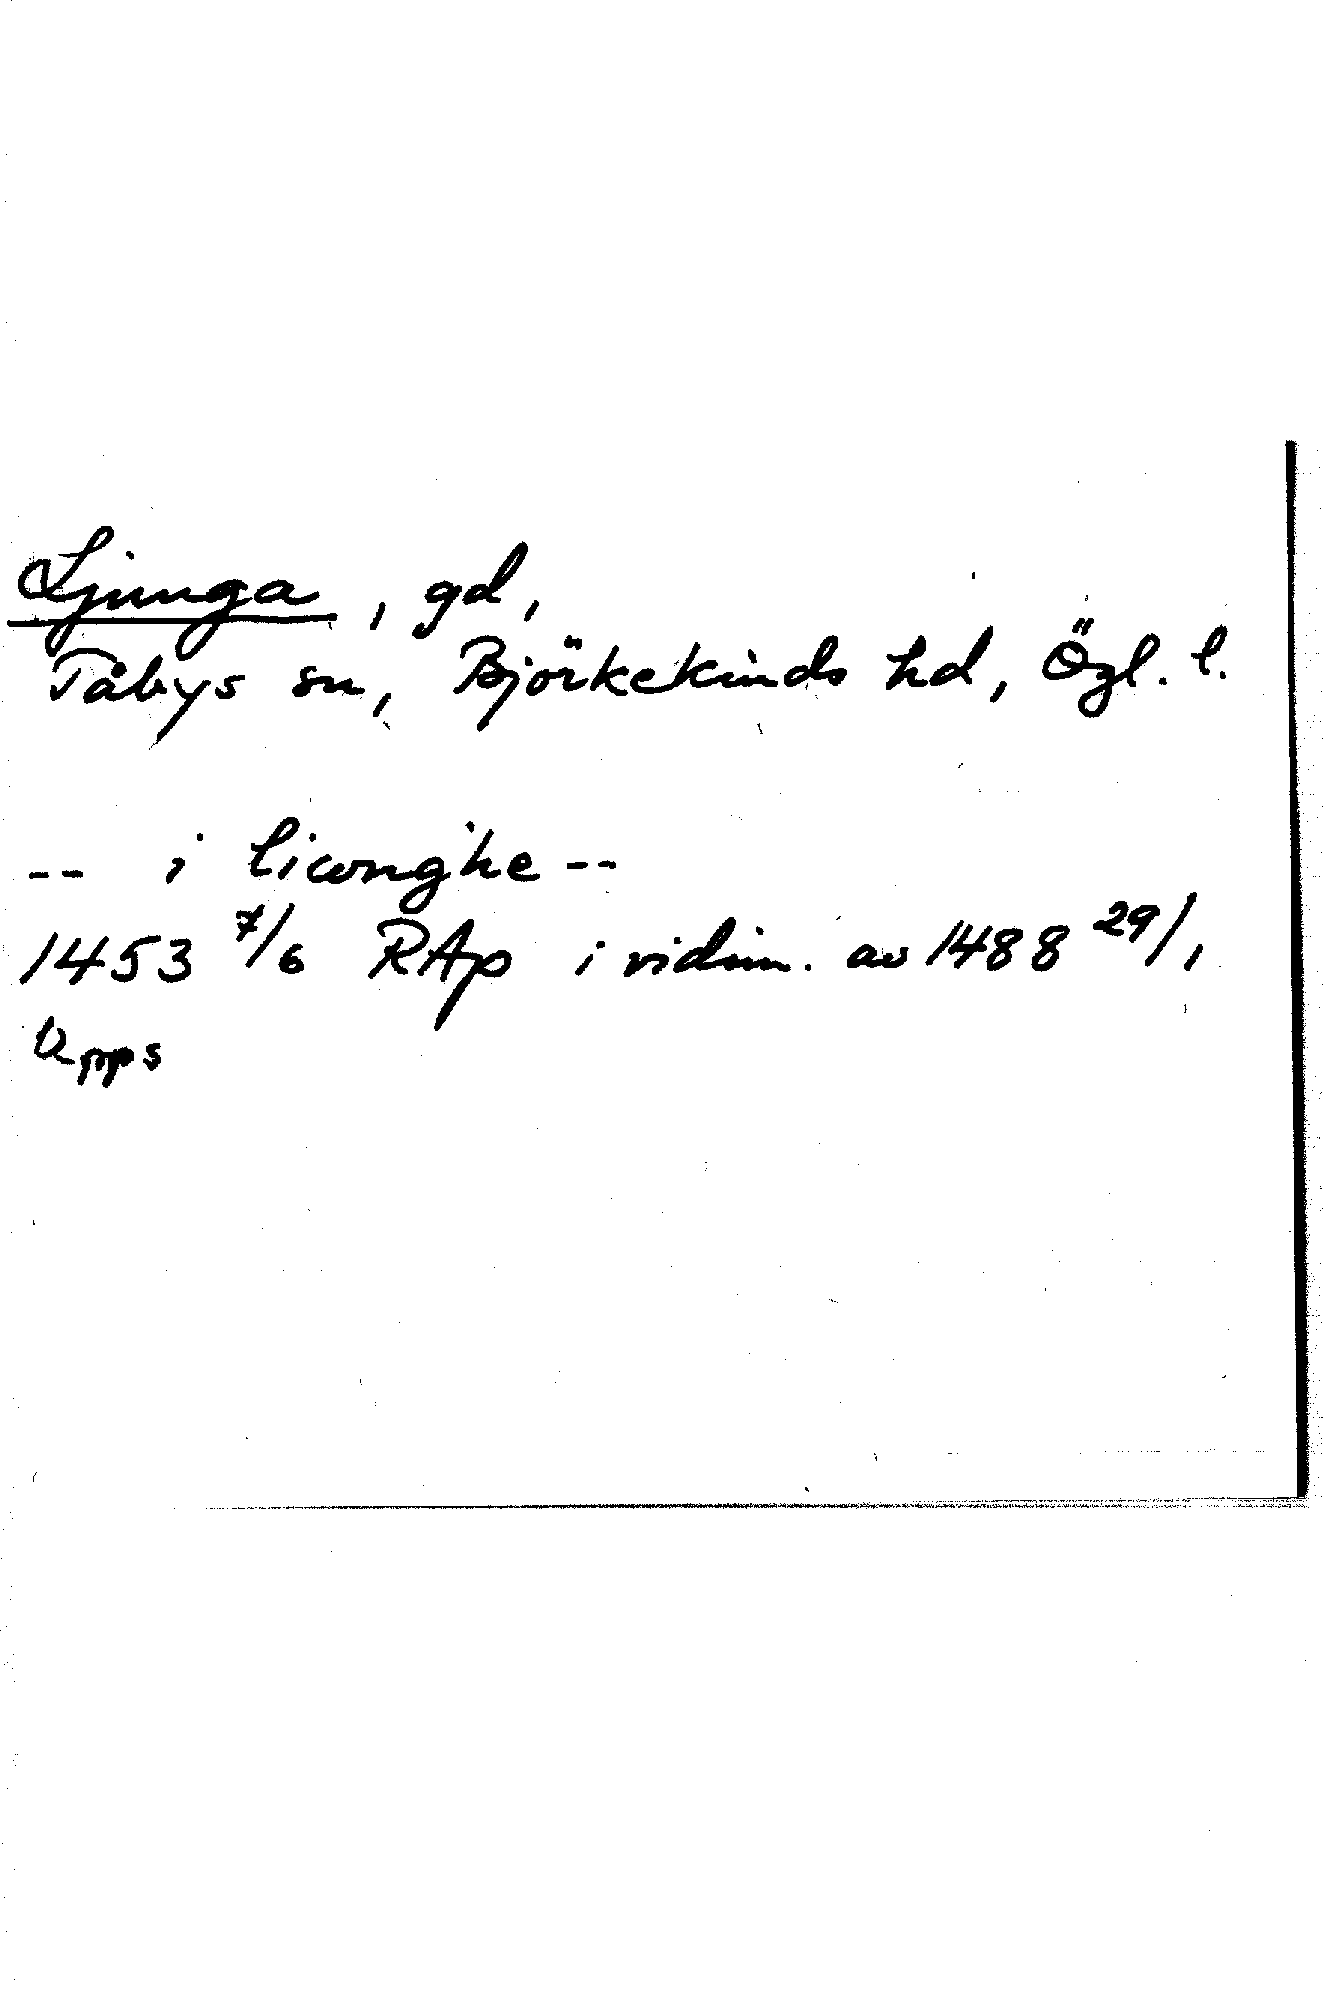 Ljunga, gd,
Tåbys sn, Björkekinds hd, Ögl. l.
-- i liwnghe --
1453 7/6 RAp i vidim. av 1488 29/1
Upps